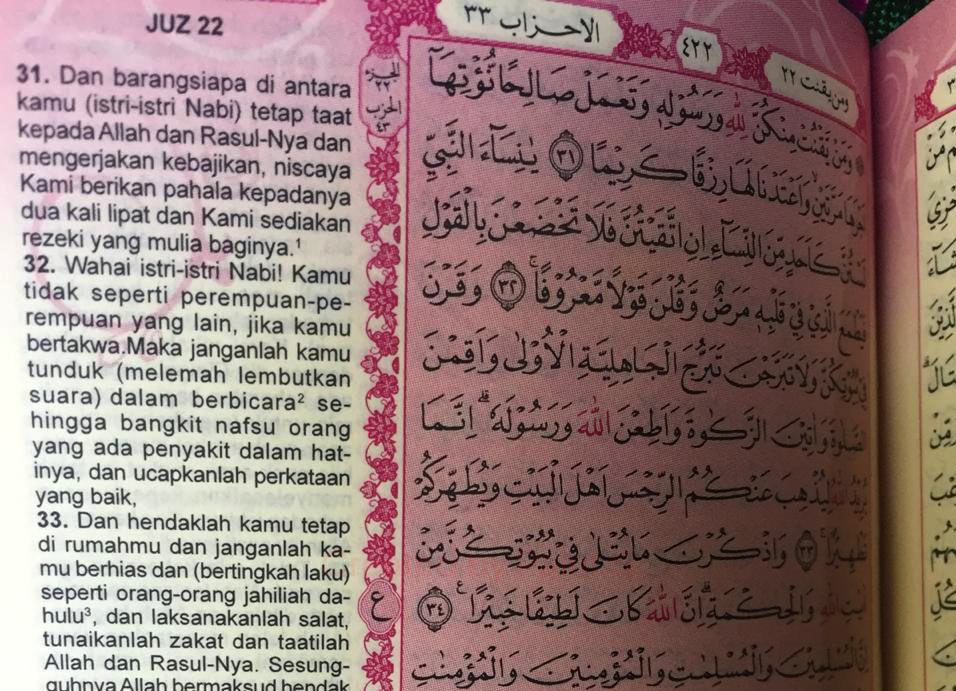 JUZ 22
31. Dan barangsiapa di antara
kamu (istri-istri Nabi) tetap taat
kepada Allah dan Rasul-Nya dan
mengerjakan kebajikan, niscaya
Kami berikan pahala kepadanya
dua kali lipat dan Kami sediakan
rezeki yang mulia baginya.¹
32. Wahai istri-istri Nabi! Kamu
tidak seperti perempuan-pe-
rempuan yang lain, jika kamu
bertakwa.Maka janganlah kamu
tunduk (melemah lembutkan
suara) dalam berbicara² se-
hingga bangkit nafsu orang
yang ada penyakit dalam hat-
inya, dan ucapkanlah perkataan
yang baik,
33. Dan hendaklah kamu tetap
di rumahmu dan janganlah ka-
mu berhias dan (bertingkah laku)
seperti orang-orang jahiliah da-
hulu³, dan laksanakanlah salat,
tunaikanlah zakat dan taatilah
Allah dan Rasul-Nya. Sesung-
guhnya Allah bermaksud hendak
الجزء
٢٢
الحزب
٤٣
ع
ومن يقنت ٢٢
٤٢٢
الاحزاب ٣٣
وَمَنْ يَّقْنُتْ مِنْكُنَّ لِلّٰهِ وَرَسُوْلِهٖ وَتَعْمَلْ صَالِحًا نُّؤْتِهَآ
اَجْرَهَا مَرَّتَيْنِ وَاَعْتَدْنَا لَهَا رِزْقًا كَرِيْمًا ٣١ يٰنِسَاۤءَ النَّبِيِّ
لَسْتُنَّ كَاَحَدٍ مِّنَ النِّسَاۤءِ اِنِ اتَّقَيْتُنَّ فَلَا تَخْضَعْنَ بِالْقَوْلِ
فَيَطْمَعَ الَّذِيْ فِيْ قَلْبِهٖ مَرَضٌ وَّقُلْنَ قَوْلًا مَّعْرُوْفًاۚ ٣٢ وَقَرْنَ
فِيْ بُيُوْتِكُنَّ وَلَا تَبَرَّجْنَ تَبَرُّجَ الْجَاهِلِيَّةِ الْاُوْلٰى وَاَقِمْنَ
الصَّلٰوةَ وَاٰتِيْنَ الزَّكٰوةَ وَاَطِعْنَ اللّٰهَ وَرَسُوْلَهٗۗ اِنَّمَا
يُرِيْدُ اللّٰهُ لِيُذْهِبَ عَنْكُمُ الرِّجْسَ اَهْلَ الْبَيْتِ وَيُطَهِّرَكُمْ
تَطْهِيْرًاۚ ٣٣ وَاذْكُرْنَ مَا يُتْلٰى فِيْ بُيُوْتِكُنَّ مِنْ
اٰيٰتِ اللّٰهِ وَالْحِكْمَةِۗ اِنَّ اللّٰهَ كَانَ لَطِيْفًا خَبِيْرًاࣖ ٣٤
اِنَّ الْمُسْلِمِيْنَ وَالْمُسْلِمٰتِ وَالْمُؤْمِنِيْنَ وَالْمُؤْمِنٰتِ